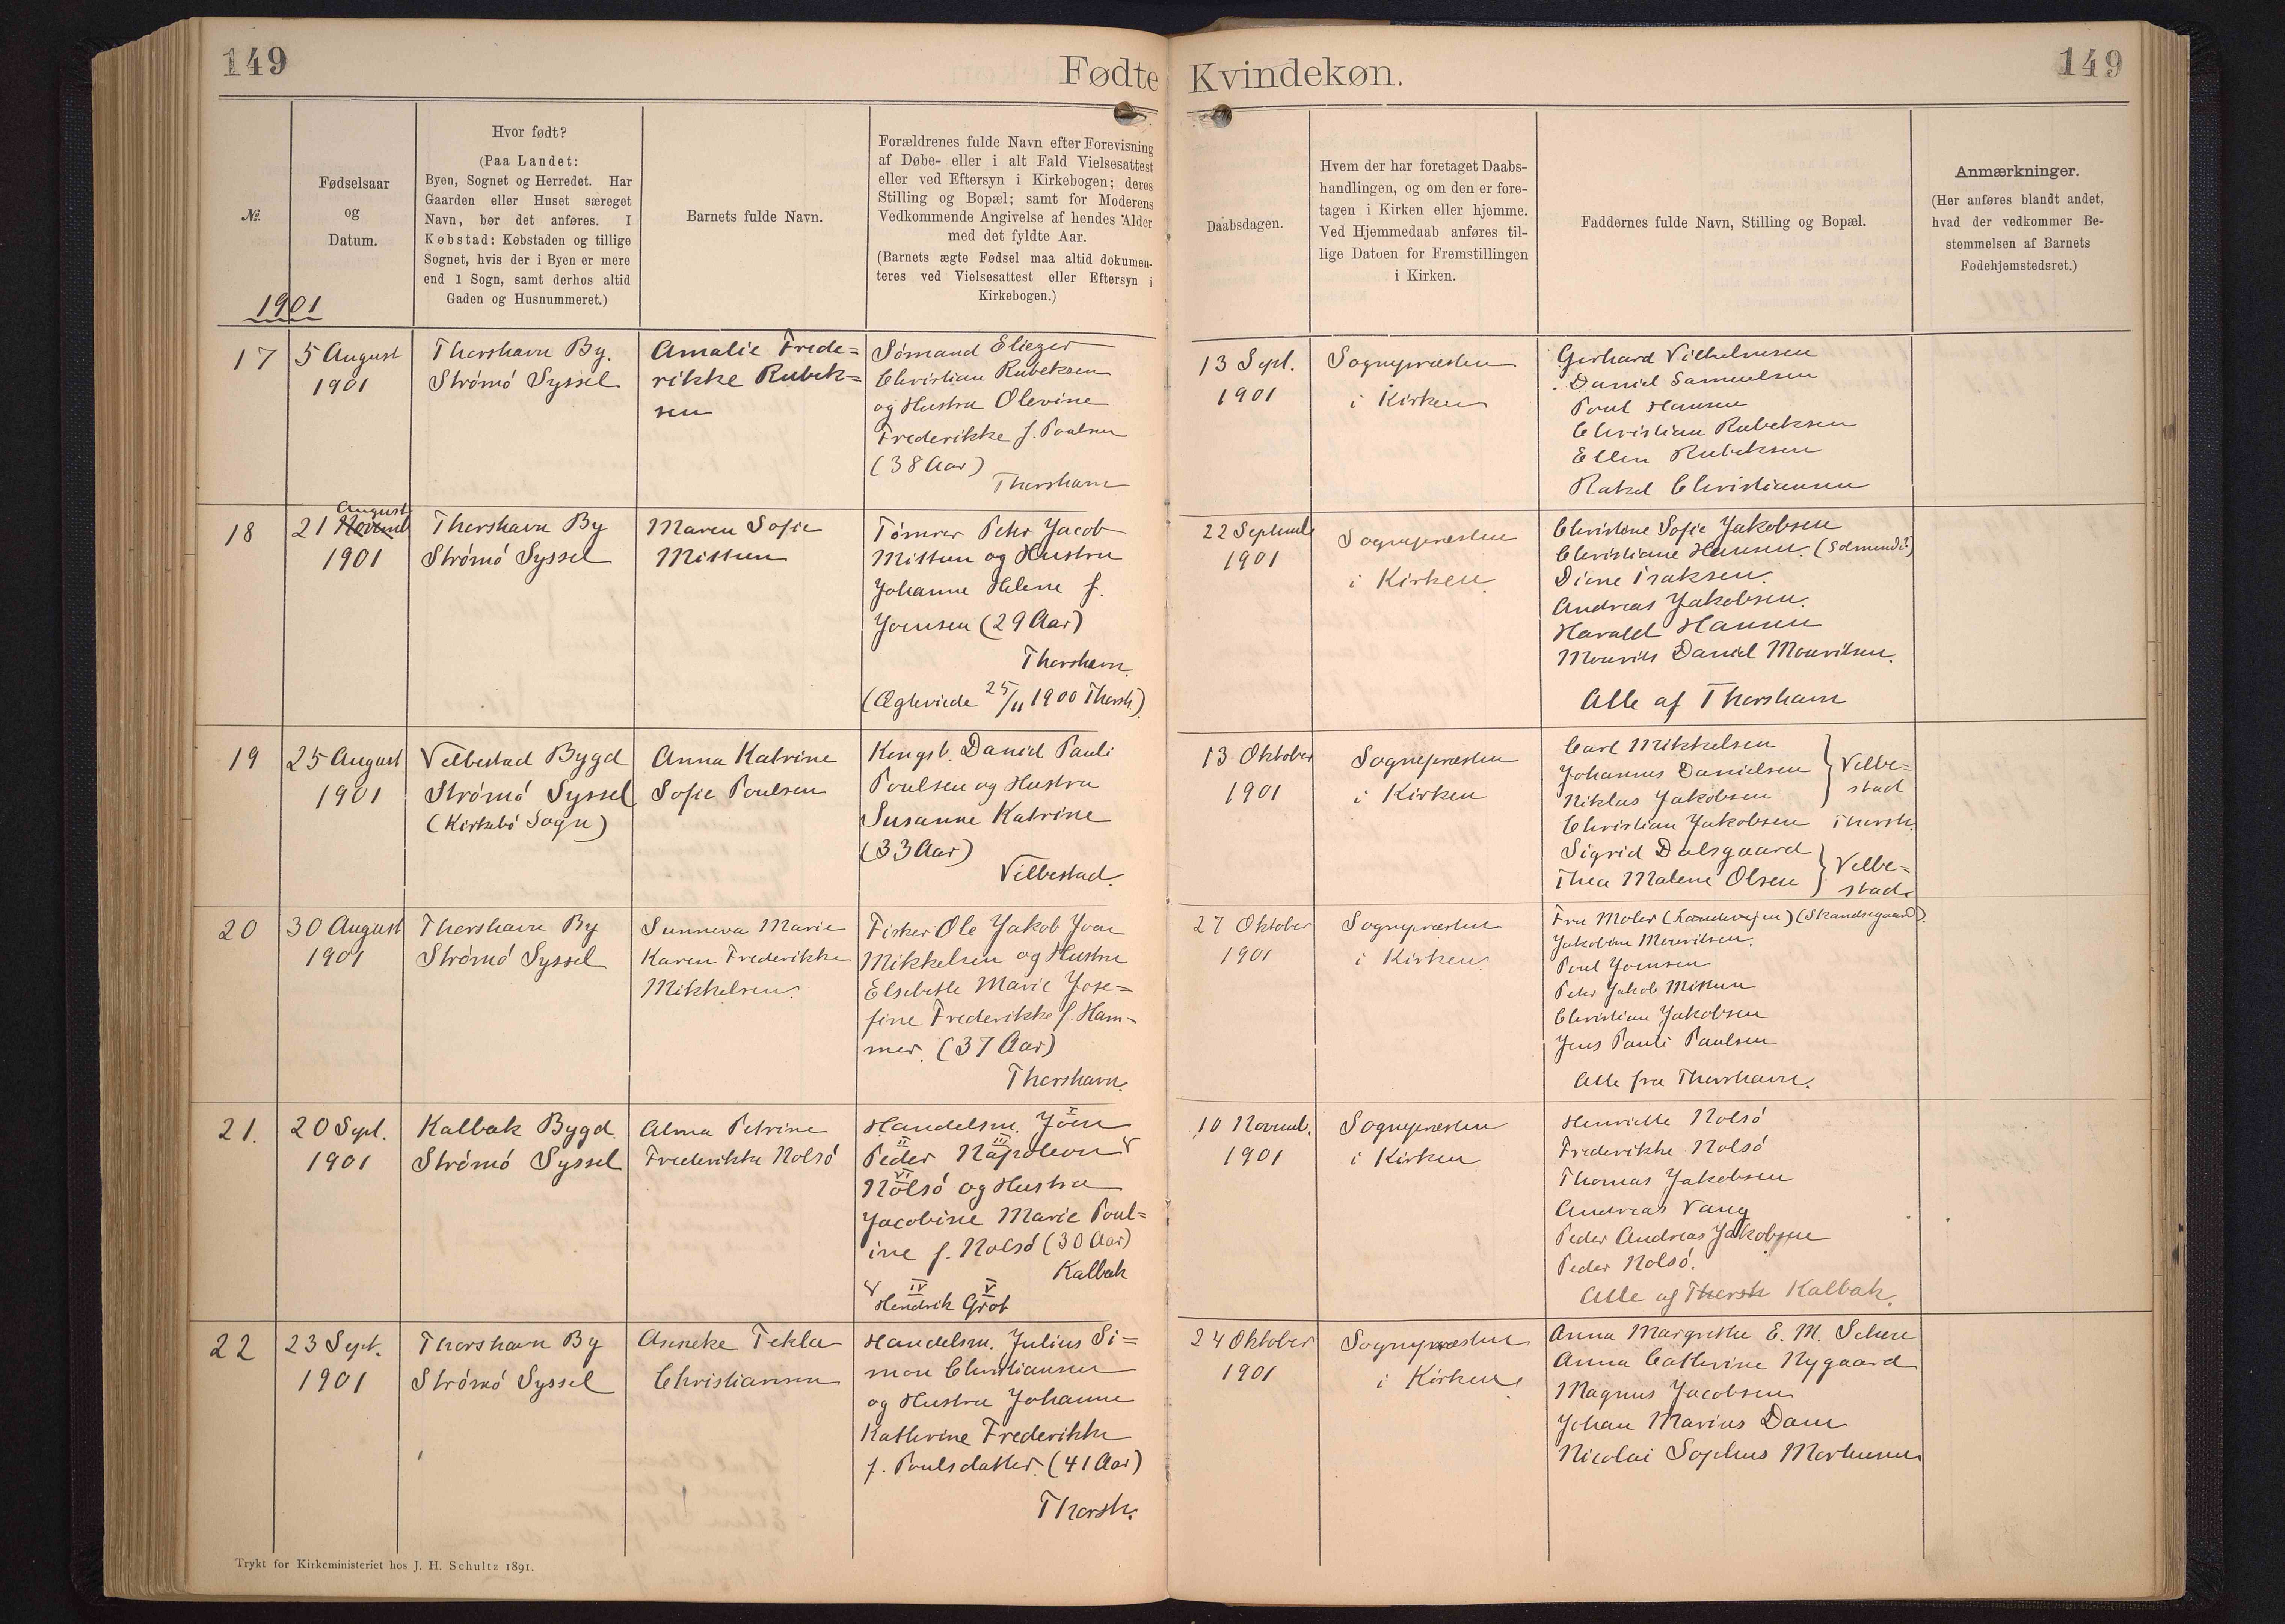 149
Fødte
Kvindekøn.
149
№.
1901
Fødselsaar
og
Datum.
Hvor født?
(Paa Landet:
Byen, Sognet og Herredet. Har
Gaarden eller Huset særeget
Navn, bør det anføres. I
Købstad: Købstaden og tillige
Sognet, hvis der i Byen er mere
end 1 Sogn, samt derhos altid
Gaden og Husnummeret.)
Barnets fulde Navn.
Forældrenes fulde Navn efter Forevisning
af Døbe- eller i alt Fald Vielsesattest
eller ved Eftersyn i Kirkebogen; deres
Stilling og Bopæl; samt for Moderens
Vedkommende Angivelse af hendes Alder
med det fyldte Aar.
(Barnets ægte Fødsel maa altid dokumen-
teres ved Vielsesattest eller Eftersyn i
Kirkebogen.)
Daabsdagen.
Hvem der har foretaget Daabs-
handlingen, og om den er fore-
tagen i Kirken eller hjemme.
Ved Hjemmedaab anføres til-
lige Datoen for Fremstillingen
i Kirken.
Faddernes fulde Navn, Stilling og Bopæl.
Anmærkninger.
(Her anføres blandt andet,
hvad der vedkommer Be-
stemmelsen af Barnets
Fødehjemstedsret.)
17
5 August
1901
Thorshavn By.
Strømø Syssel
Amalie Frede=
rikke Rubek=
sen
Sømand Eliezer
Christian Rubeksen
og Hustru Olevine
Frederikke f. Poulsen
(38 Aar)
Thorshavn
13 Sept.
1901
Sognepræsten
i Kirken
Gerhard Vilhelmsen
Daniel Samuelsen
Poul Hansen
Christian Rubeksen
Ellen Rubeksen
Rakel Christiansen
18
August
21 Novemb
1901
Thorshavn By
Strømø Syssel
Maren Sofie
Mitten
Tømrer Peter Jacob
Mitten og Hustru
Johanne Helene f.
Joensen (29 Aar)
Thorshavn
(Ægteviede 25/11 1900 Thorsh.)
22 Septemb
1901
Sognepræsten
i Kirken
Christine Sofie Jakobsen
Christiane Hansen.
Diene Isaksen.
Andreas Jakobsen.
Harald Hansen
Mourits Daniel Mouritsen.
Alle af Thorshavn
19
25 August
1901
Velbestad Bygd
Strømø Syssel
(Kirkebø Sogn)
Anna Katrine
Sofie Poulsen
Kongsb. Daniel Pauli
Poulsen og Hustru
Susanne Katrine
(33 Aar)
Velbestad.
13 Oktober
1901
Sognepræsten
i Kirken
Carl Mikkelsen
Johannes Danielsen } Velbe=
Niklas Jakobsen stad
Christian Jakobsen Thorsh.
Sigrid Dalsgaard
Thea Malene Olsen } Velbe=
stad
20
30 August
1901
Thorshavn By
Strømø Syssel
Sunneva Marie
Karen Frederikke
Mikkelsen.
Fisker Ole Jakob Joen
Mikkelsen og Hustru
Elsebeth Marie Jose=
fine Frederikke f. Ham-
mer. (37 Aar)
Thorshavn.
27 Oktober
1901
Sognepræsten
i Kirken
Fru Moler (Skandsegaard).
Jakobine Mouritsen.
Poul Joensen
Peter Jakob Mitten
Christian Jakobsen
Jens Pauli Paulsen
Alle fra Thorshavn.
21.
20 Sept.
1901
Kalbak Bygd
Strømø Syssel
Alma Petrine
Frederikke Nolsø
I
Handelsm. Joen
II III
Peder Napoleon
VI
Nolsø og Hustru
Jacobine Marie Poul=
ine f. Nolsø (30 Aar)
Kalbak
IV V
Hendrik Grot
10 Novemb.
1901
Sognepræsten
i Kirken
Henriette Nolsø
Frederikke Nolsø
Thomas Jakobsen
Andreas Vang
Peder Andreas Jakobsen
Peder Nolsø.
Alle af Thorsh Kalbak.
22
23 Sept.
1901
Thorshavn By
Strømø Syssel
Anneke Tekla
Christiansen
Handelsm. Julius Si=
mon Christiansen
og Hustru Johanne
Kathrine Frederikke
f. Poulsdatter. (41 Aar)
Thorsh.
24 Oktober
1901
Sognepræsten
i Kirken
Anna Margrethe E. M.
Anna Cathrine Nygaard
Magnus Jacobsen
Johan Marius Dam
Nicolai Sophus Mortensen
Trykt for Kirkeministeriet hos J. H. Schultz 1891.